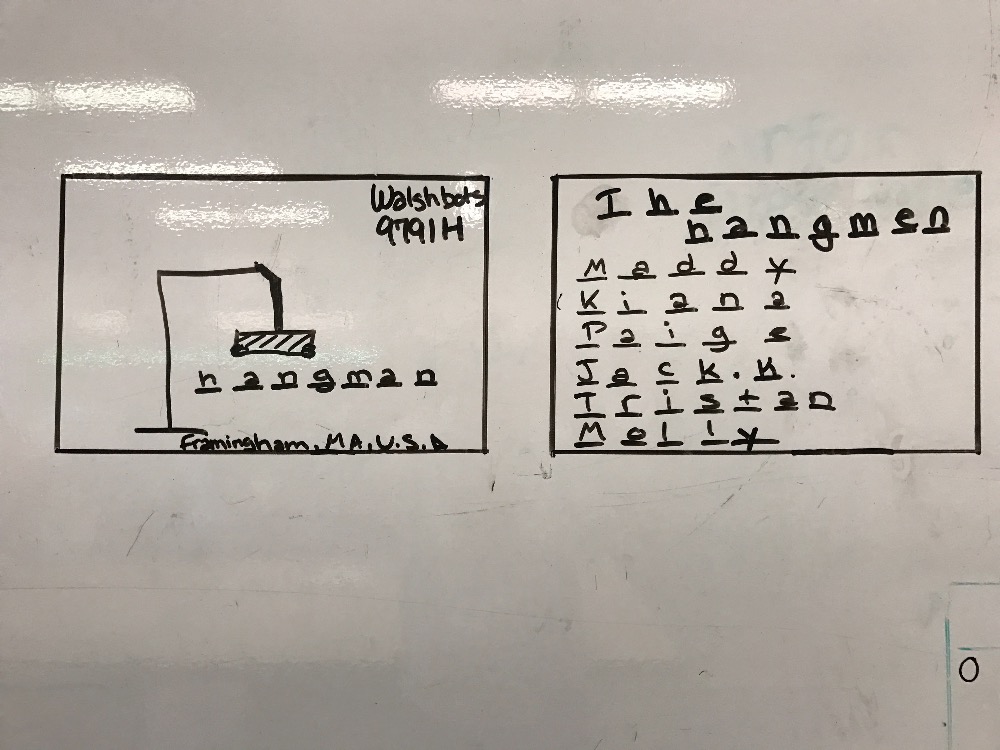 Walshbots
9791H
hangman
Framingham, MA, U.S.A
The
hangmen
Maddy
Kiana
Paige
Jack.K.
Tristan
Molly
O